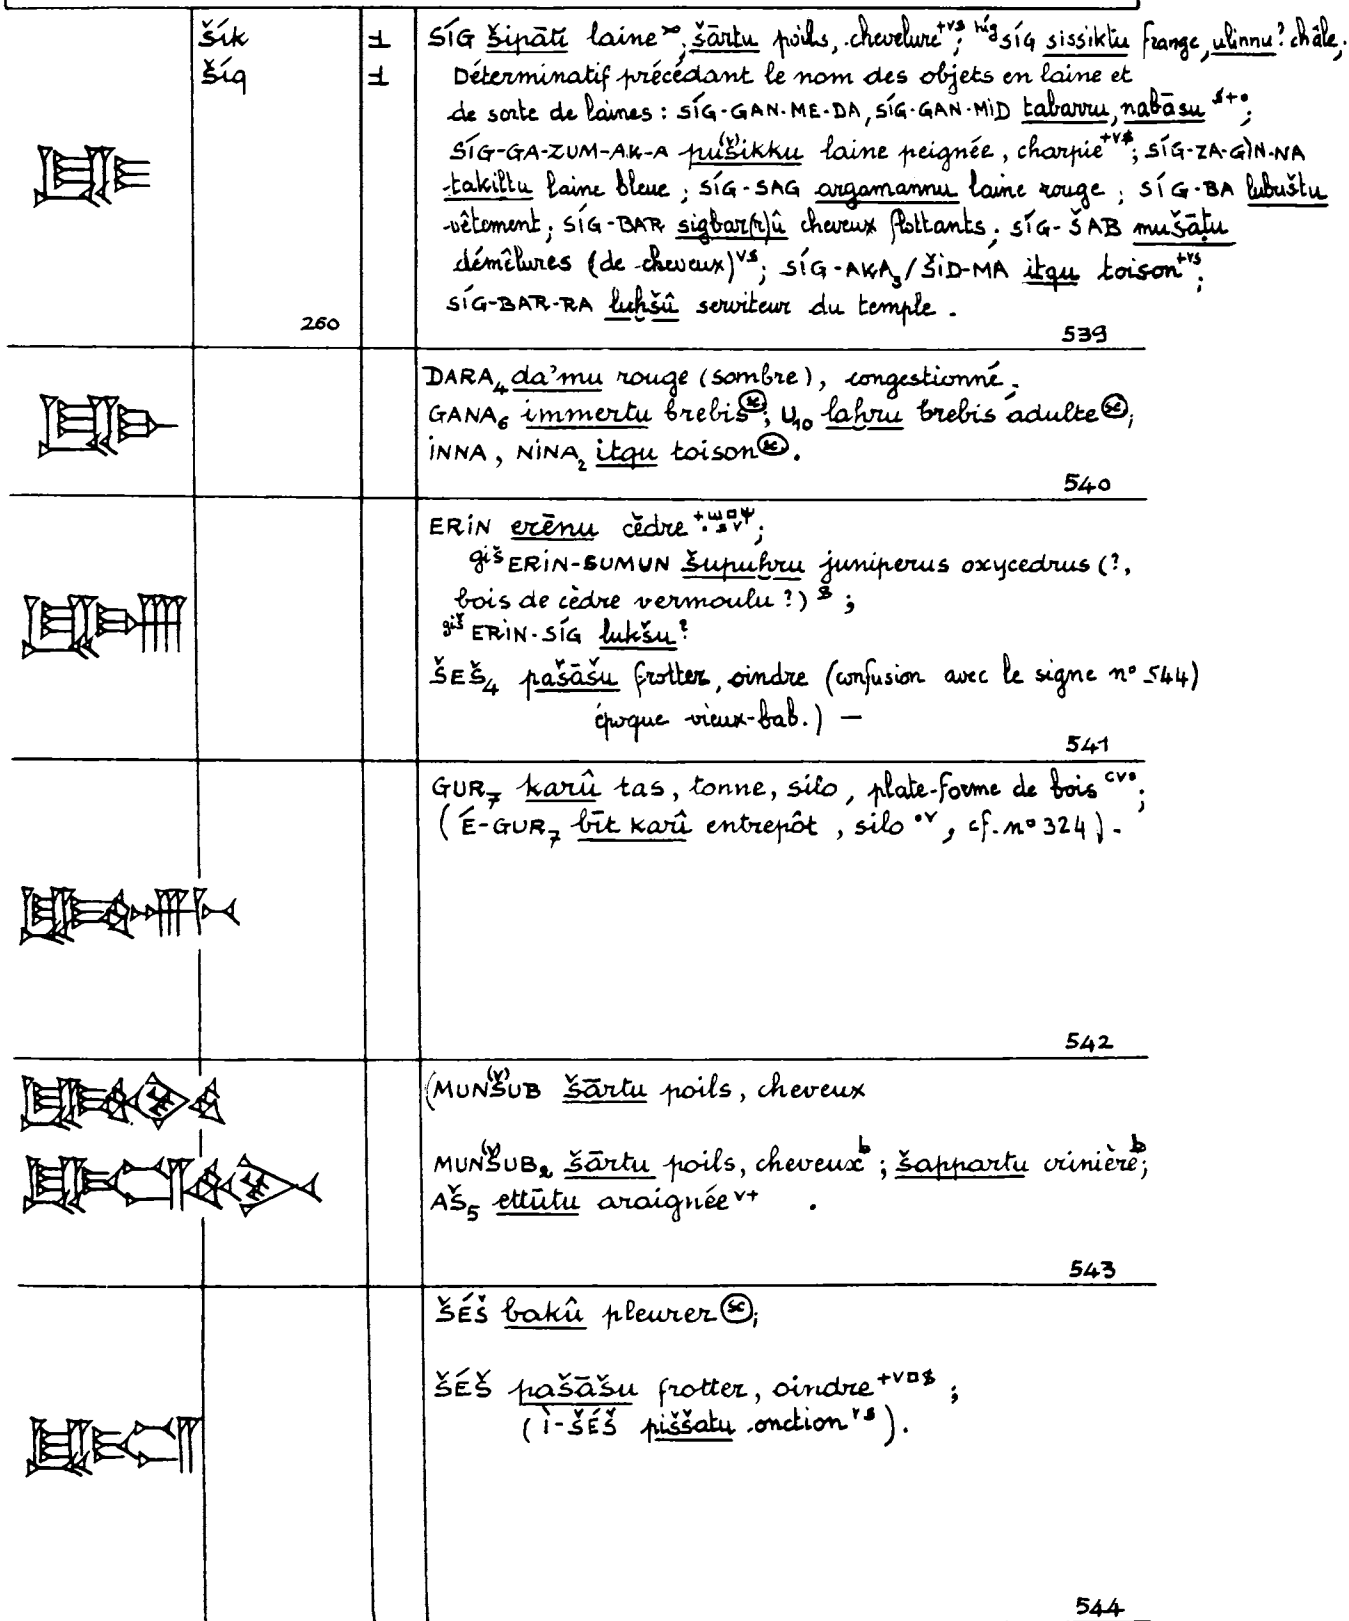 šík ⅟ SÍG šipāti laine, šārtu poils, chevelure +vs; túg SÍG sissiktu frange, ulinnu? châle,
šíq Déterminatif précédant le nom des objets en laine et
de sorte de laines : SÍG-GAN-ME-DA, SÍG-GAN-MID tabarru, nabāsu;
SÍG-GA-ZUM-AK-A pušikku laine peignée, charpie; SÍG-ZA-GÌN-NA
takiltu laine bleue ; SÍG-SAG argamannu laine rouge ; SÍG-BA lubuštu
vêtement; SÍG-BAR sigbar(r)û cheveux flottants; SÍG-ŠAB mušāṭu
démêlures (de cheveux) vs; SÍG-AKA₃/ŠID-MA itqu toison +vs;
SÍG-BAR-RA luḫšû serviteur du temple.
260 539
DARA₄ da'mu rouge (sombre), congestionné.
GANA₆ immertu brebis ; U₁₀ laḫru brebis adulte ;
INNA, NINA₂ itqu toison .
540
ERIN erēnu cèdre ;
giš ERIN-SUMUN šupuḫru juniperus oxycedrus (?,
bois de cèdre vermoulu ?) ;
giš ERIN-SÍG lukšu?
ŠEŠ₄ pašāšu frotter, oindre (confusion avec le signe n° 544)
époque vieux-bab.) —
541
GUR₇ karû tas, tonne, silo, plate-forme de bois ;
(É-GUR₇ bīt karû entrepôt, silo, cf. n° 324).
542
(MUNŠUB šārtu poils, cheveux
MUNŠUB₂ šārtu poils, cheveux b ; šappartu crinière b;
AŠ₅ ettūtu araignée v+ .
543
ŠÉŠ bakû pleurer ;
ŠÉŠ pašāšu frotter, oindre ;
(Ì-ŠÉŠ piššatu onction vs).
544